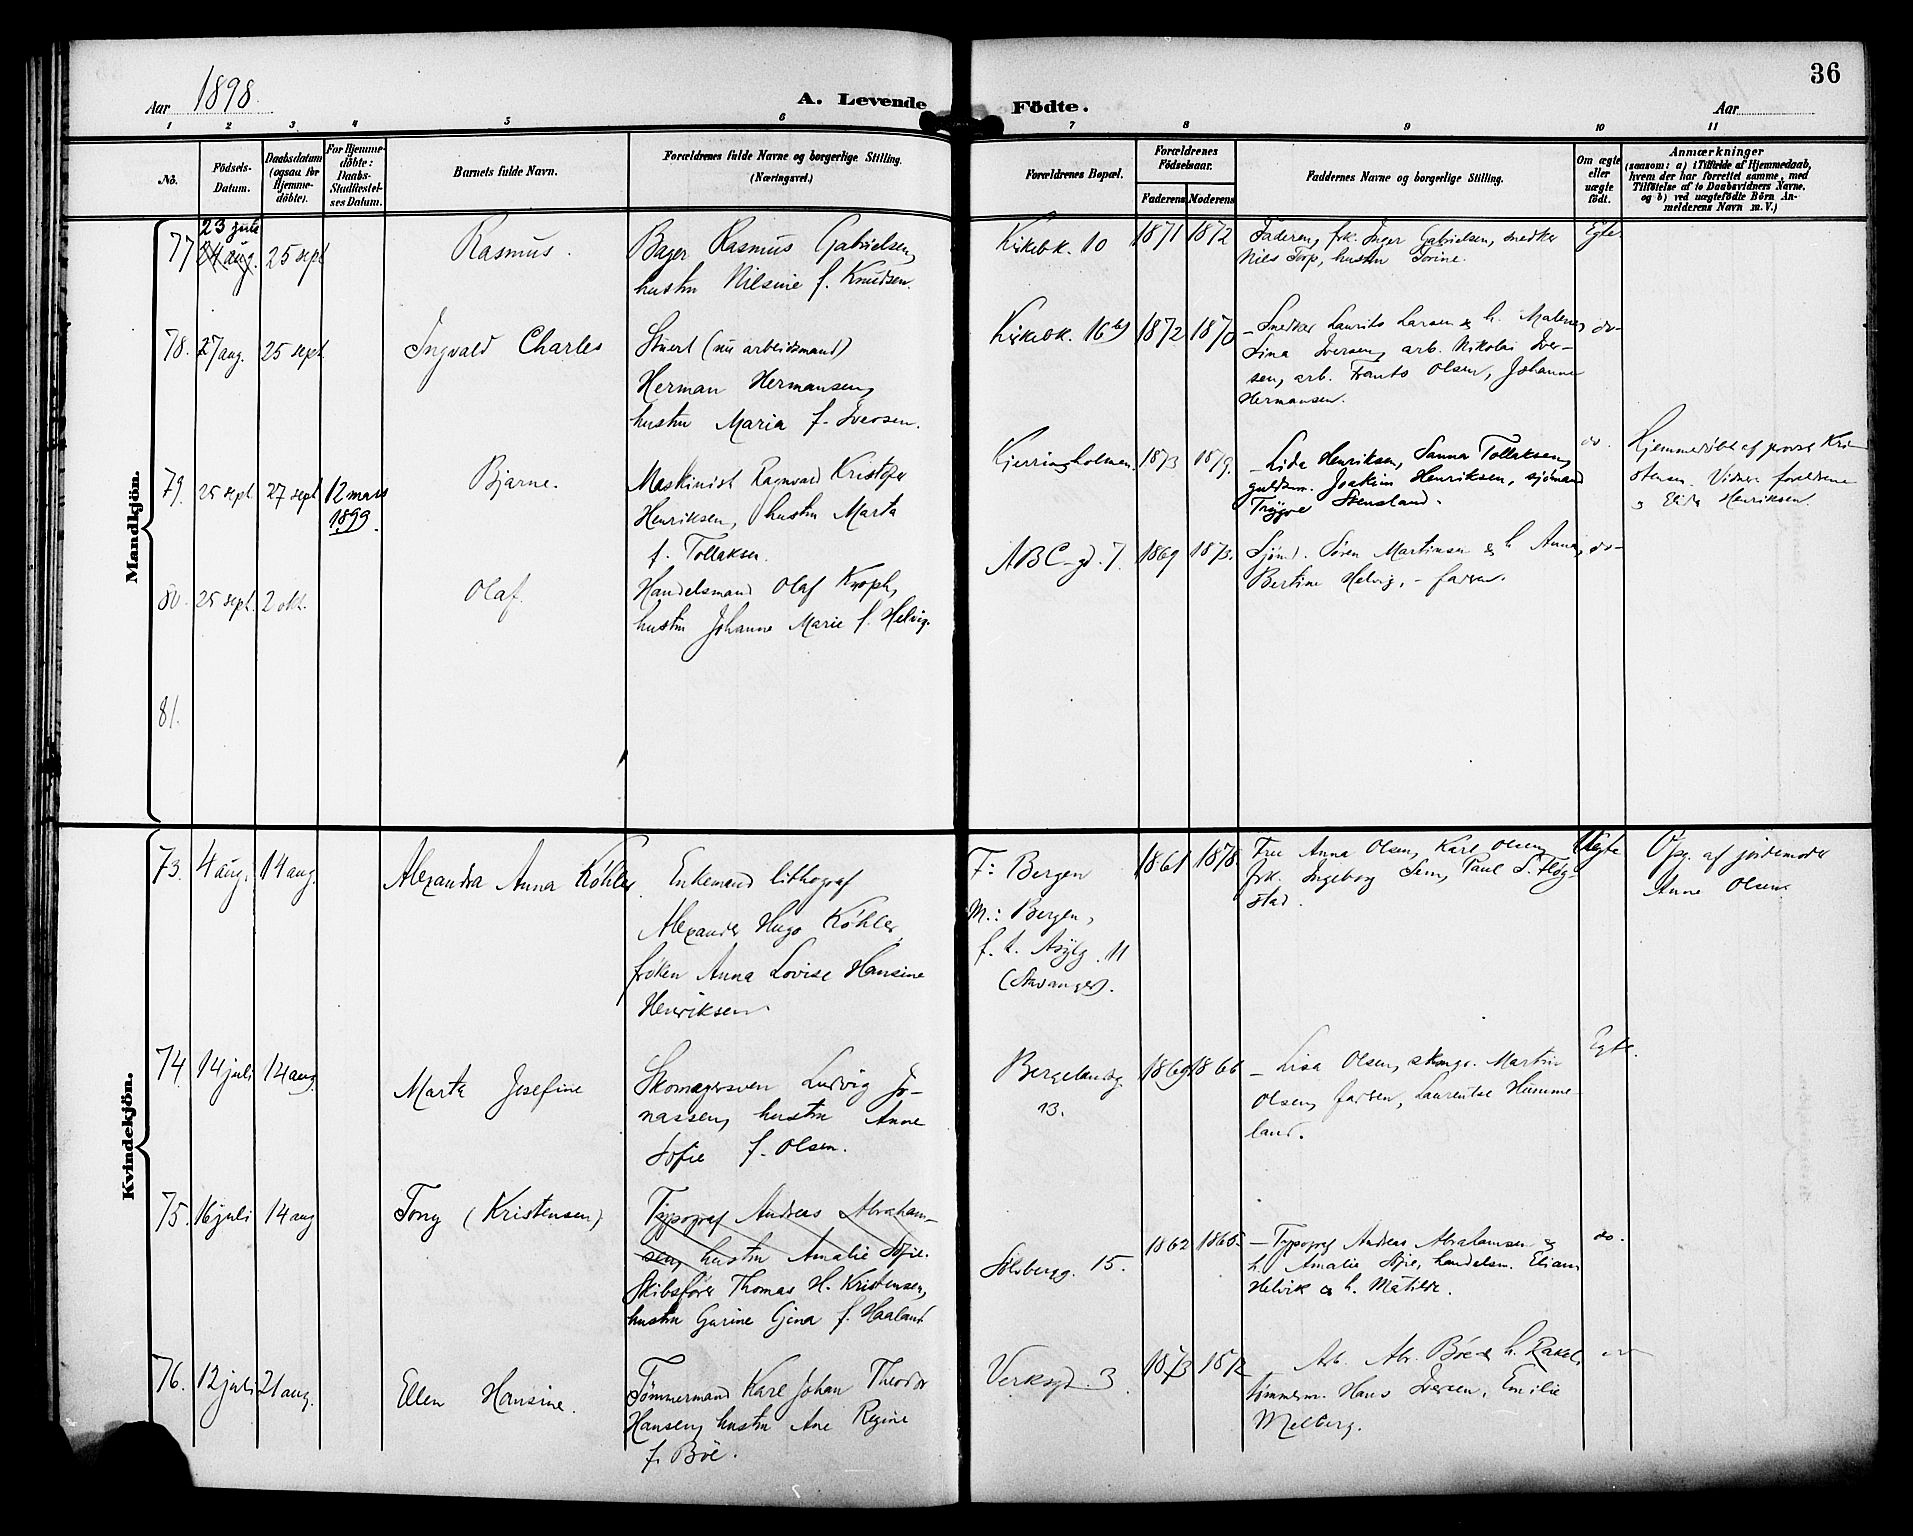 Aar 1898.
A. Levende
Fødte.
Aar
36
1 2 3 4 5 6 7 8 9 10 11
No.
Fødsels-
Datum.
Daabsdatum
(ogsaa for
Hjemme-
døbte).
For Hjemme-
døbte:
Daabs-
Stadfæstel-
ses Datum.
Barnets fulde Navn.
Forældrenes fulde Navne og borgerlige Stilling.
(Næringsvei.)
Forældrenes Bopæl.
Forældrenes
Fødselsaar.
Faderens Moderens
Faddernes Navne og borgerlige Stilling.
Om ægte
eller
uægte
født.
Anmærkninger
(saasom: a) i Tilfælde af Hjemmedaab,
hvem der har forrettet samme, med
Tilføielse af to Daabsvidners Navne,
og b) ved uægtefødte Børn An-
melderens Navn m. V.)
Mandkjön.
77
23 juli
24 aug.
25 sept
Rasmus.
Bager Rasmus Gabrielsen,
hustru Nilsine f. Knudsen.
Kirkebk. 10
1871 1872
Faderen, frk. Inger Gabrielsen, snedker
Nils Torp, hustru Torine.
Egte
78.
27 aug.
25 sept
Ingvald Charles
Stuert (nu arbeidsmand)
Herman Hermansen,
hustru Maria f. Iversen.
Kirkebk. 16 b)
1872 1870
– Snedker Laurits Larsen & h. Malene,
Sina Iversen, arb. Nikolai Iver-
sen, arb. Frants Olsen, Johanne
Hermansen.
do-
79.
25 sept
27 sept
12 mars
1899.
Bjarne.
Maskinist Ragnvald Kristofer
Henriksen, hustru Marta
f. Tollaksen.
Kjerringholmen.
1873 1879.
– Lida Henriksen, Sanna Tollaksen,
guldsm. Joakim Henriksen, sjömand
Trygve Stensland.
do.
Hjemmedöbt af provst Kri-
stensen. Vidner: foreldrene
& Elida Henriksen.
80.
25 sept.
2 okt.
Olaf.
Handelsmand Olaf Kroph,
hustru Johanne Marie f. Helvig.
ABC-gd. 7.
1869 1873.
Sjömd. Søren Martinsen & h. Anna,
Bertine Helvig, – farren.
do-
81.
Kvindekjön.
73.
4 aug.
14 aug.
Alexandra Anna Köhler
Enkemand lithograf
Alexander Hugo Köhler,
fröken Anna Lovise Hansine
Henriksen
F: Bergen
M.: Bergen,
f. t. Asylg. 11
(Stavanger).
1861 1878.
Fru Anna Olsen, Karl Olsen,
frk. Ingeborg Sem, Paul S. Fløg-
stad.
Uegte
Opg. af jordemoder
Anne Olsen.
74
14 juli
14 aug.
Marta Josefine
Skomagersven Ludvig Jo-
nassen, hustru Anne
Sofie f. Olsen.
Bergelandsg.
13.
1869 1866
– Lisa Olsen, skomgr. Martin
Olsen, farren, Laurentse Humme-
land.
Egte.
75.
16 juli
14 aug
Tony (Kristensen)
Typograf Andreas Abraham-
sen, hustru Amalie Sofie.
Skibsfører Thomas H. Kristensen,
hustru Gurine Gjena f. Haaland
Sölvbergg. 15.
1862 1865
– Typograf Andreas Abrahamsen &
h. Amalie Sofie, handelsm. Eliam
Helvik & h. Matilde.
do.
76.
12 juli
21 aug.
Ellen Hansine.
Tömmermand Karl Johan Theodor
Hansen, hustru Ane Regine
f. Böe.
Verksgd. 3.
1873 1872
Arb. Abr. Böe & h. Rakel,
tömmerm. Hans Iversen, Emilie
Melberg.